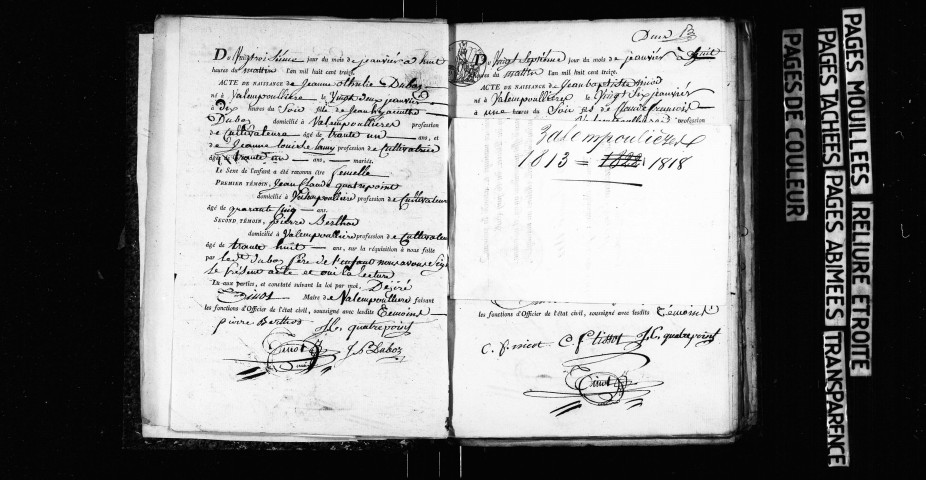 Du Vingt troisième jour du mois de janvier à huit
heures du matin l'an mil huit cent treize.
ACTE DE NAISSANCE de Jeanne Othilie Duboz
né à Valempoullière le Vingt deux janvier
à Dix heures du Soir fils de Jean hyacinthe
Duboz domicilié à Valempoullieres profession
de Cultivateur âgé de trante un ans, et
de Jeanne Louise Lamy profession de Cultivatrice
âgée de trante un ans, mariés.
Le Sexe de l'enfant a été reconnu être femelle
PREMIER TÉMOIN, Jean Claude quatrepoint
domicilié à Valempoulliere profession de Cultivateur
âgé de quarante Cinq ans.
SECOND TÉMOIN, pierre Berthod
domicilié à Valempoulliere profession de Cultivateur
âgé de trante huit ans, sur la réquisition à nous faite
par le dt Duboz père de l'enfant
le présent acte et oui la lecture
Lu aux parties, et constaté suivant la loi par moi, Désiré
Tinot Maire de Valempoulliere faisant
les fonctions d'Officier de l'état civil, soussigné avec lesdits témoins
pierre Berthod J. C. quatrepoint
Tinot J h Duboz
Deux
Du Vingt Septième jour du mois de janvier à huit
heures du matin l'an mil huit cent treize.
ACTE DE NAISSANCE de Jean baptiste
né à Valempoullieres le Vingt Six janvier
à une heures du Soir fils de
profession
Valempoulières
1813 = 1822 1818
les fonctions d'Officier de l'état civil, soussigné avec lesdits témoins
J. C. quatrepoint
Tinot
PAGES MOUILLEES RELIURE ETROITE
PAGES TACHEES PAGES ABIMEES TRANSPARENCE
PAGES DE COULEUR